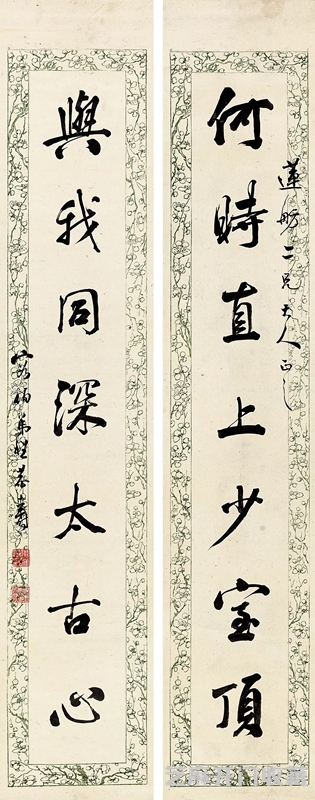 蓮舫二兄大人正之
何時直上少室頂
與我同深太古心